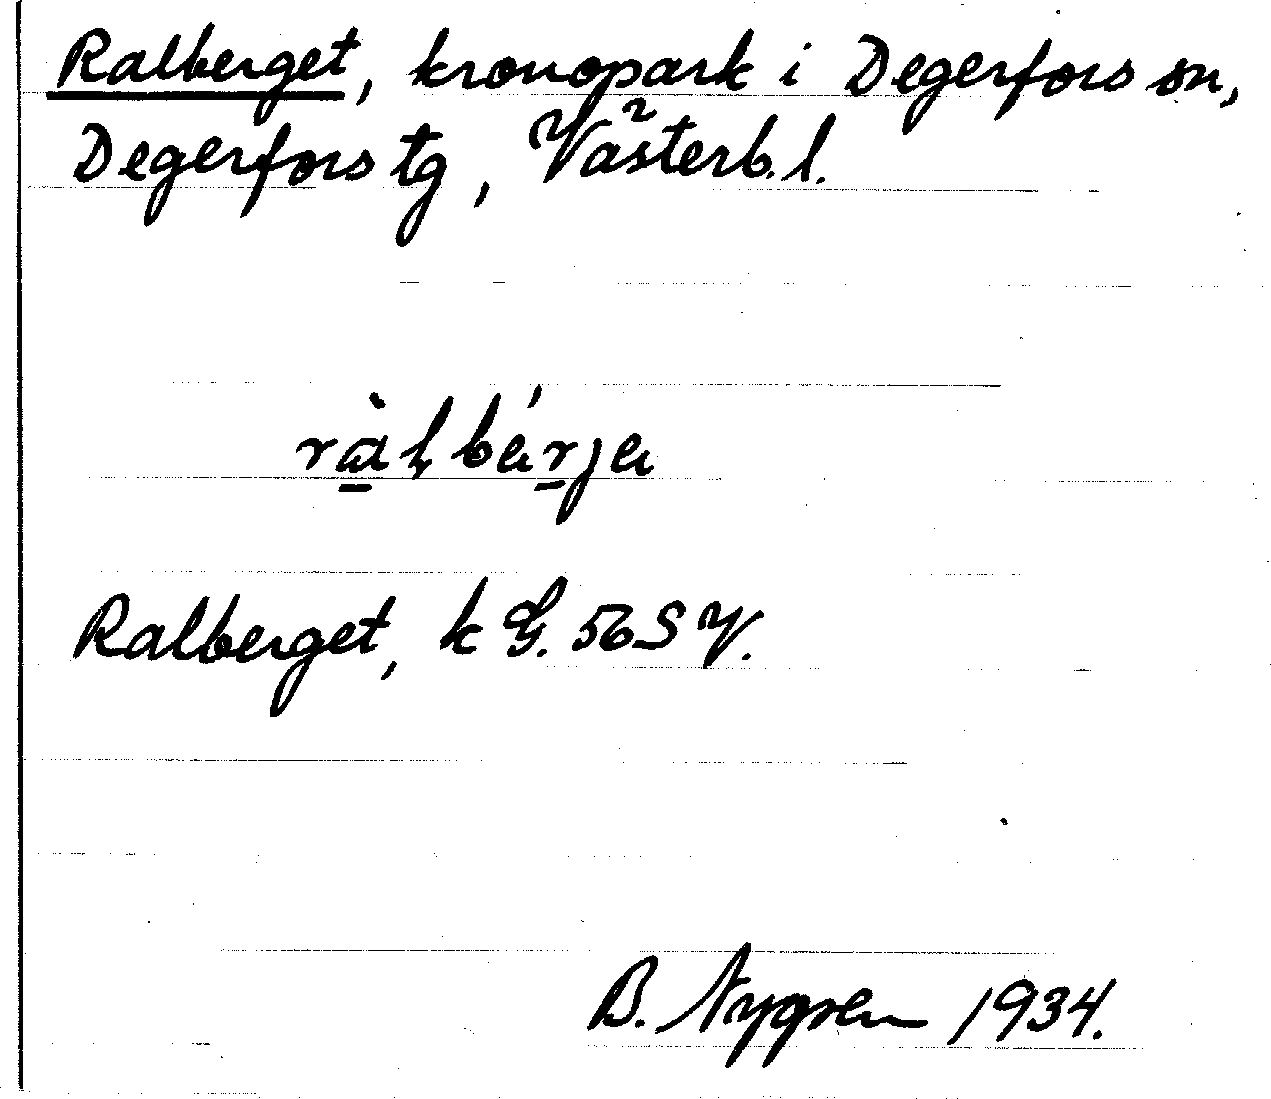 Ralberget, kronopark i Degerfors sn,
Degerfors tg, Västerb. l.
Ralberget, k G. 56 SV.
B. Nygren 1934.